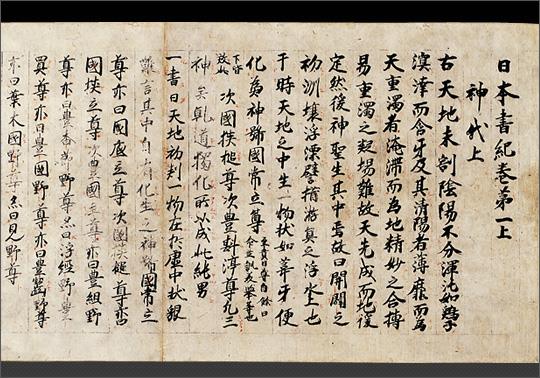 日本書紀巻第一上
神代上
古天地未剖陰陽不分渾沌如鶏子
溟涬而含牙及其清陽者薄靡而為
天重濁者淹滞而為地精妙之合搏
易重濁之凝場難故天先成而地後
定然後神聖生其中焉故曰開闢之
初洲壌浮漂譬猶游魚之浮水上也
于時天地之中生一物状如葦牙便
化為神号国常立尊
至貴曰尊自餘曰
命並訓美挙等也
下皆
效此
次国狭槌尊次豊斟渟尊凡三
神矣乾道獨化所以成此純男
一書曰天地初判一物在於虚中状貌
難言其中自有化生之神号国常立
尊亦曰国底立尊次国狭槌尊亦曰
国狭立尊次豊国主尊亦曰豊組野
尊亦曰豊香節野尊亦曰浮経野豊
買尊亦曰豊国野尊亦曰豊齧野尊
亦曰葉木国野尊亦曰見野尊